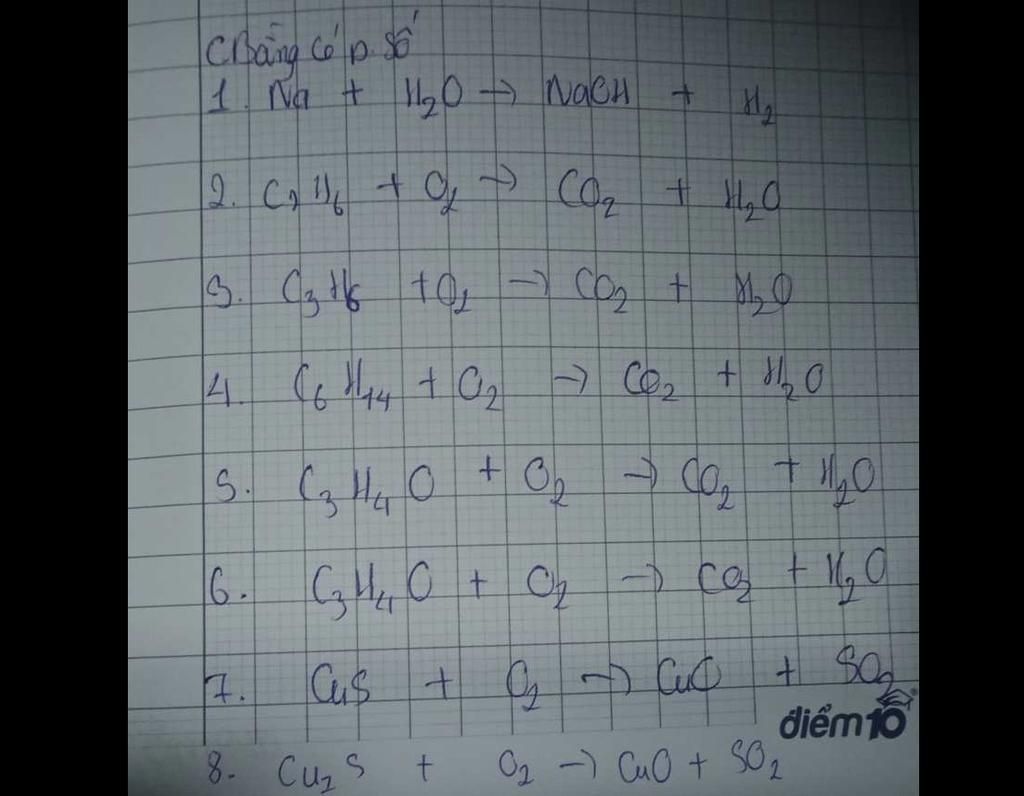 CBằng có p. số
1. Na + H₂O → NaOH + H₂
2. C₂H₆ + O₂ → CO₂ + H₂O
3. C₃H₆ + O₂ → CO₂ + H₂O
4. C₆H₁₄ + O₂ → CO₂ + H₂O
5. C₃H₄O + O₂ → CO₂ + H₂O
6. C₃H₄O + O₂ → CO₂ + H₂O
7. CuS + O₂ → CuO + SO₂
điểm10
8. Cu₂S + O₂ → CuO + SO₂